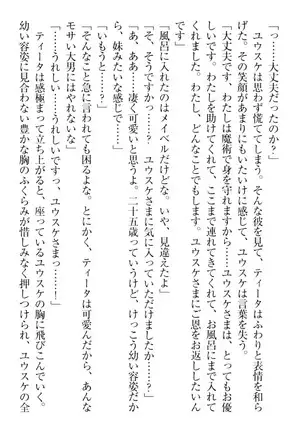 ユウスケは思わず慌ててしまう。そんな彼を見て、ティータはふわりと表情を和ら
げた。その笑顔があまりにもいたいけに感じて、ユウスケは言葉を失う。
「大丈夫です、わたしは魔術で身を守れますから……ユウスケさまは、とってもお優
しいです。わたしを助けてくれて、ここまで連れてきてくれて、お風呂にまで入れて
くれて……わたし、どんなことでもします。ユウスケさまにご恩をお返ししたい
です」
「風呂に入れたのはメイベルだけどな。いや、見違えたよ」
「そ、そうですか……？　ユウスケさまに気に入っていただけましたか……？」
「あ、ああ……凄く可愛いと思うよ。二十五歳っていうけど、けっこう幼い容姿だか
ら、妹みたいな感じで……」
「いもうと……？」
「そんなこと急に言われても困るよな。とにかく、ティータは可愛いんだから、あんな
モサい大男にはやれないな」
「……うれしい……うれしいです、ユウスケさまっ……！」
　ティータは感極まって立ち上がると、座っているユウスケの胸に飛びこんでいく。
幼い容姿に見合わない豊かな胸のふくらみが惜しみなく押しつけられ、ユウスケの全